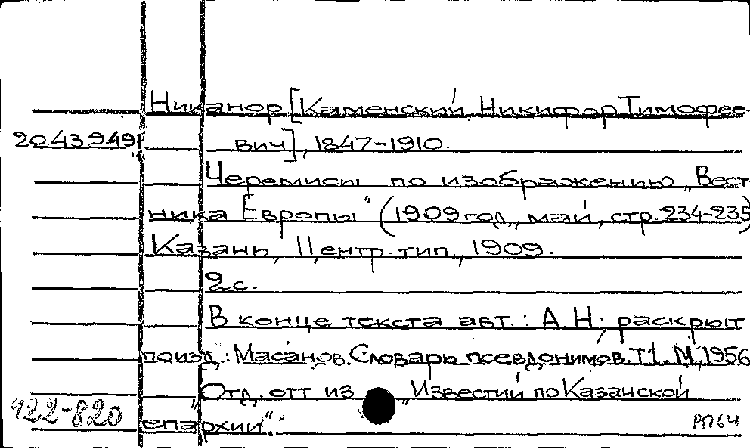 Никанор [Каменский, Никифор Тимофее-
2043949 вич], 1847-1910.
Черемисы по изображению "Вест-
ника Европы" (1909 год, май, стр. 234-235)
Казань, Центр. тип., 1909.
2 с.
В конце текста авт.: А.Н.; раскрыт
по изд.: Масанов. Словарь псевдонимов. т.1. М., 1956
Отд. отт. из "Известий по Казанской
422-820 епархии".
РП64